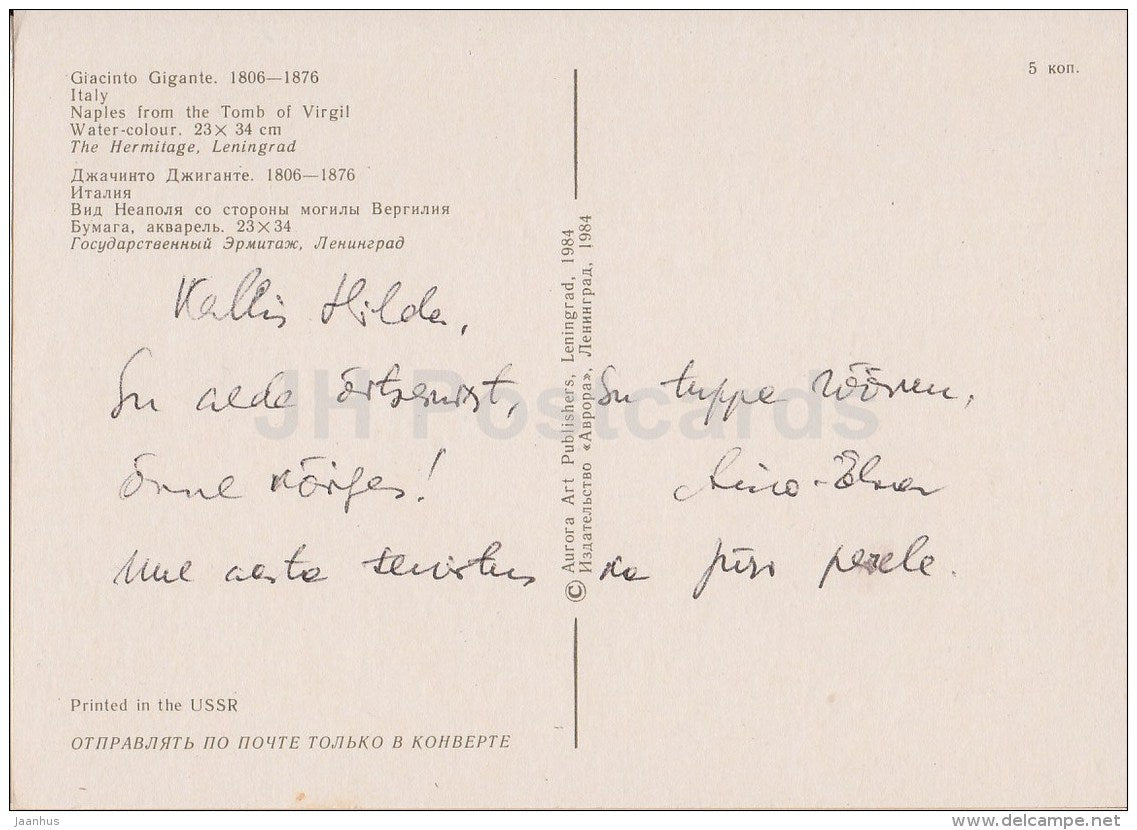 Giacinto Gigante. 1806—1876
Italy
Naples from the Tomb of Virgil
Water-colour. 23× 34 cm
The Hermitage, Leningrad
Джачинто Джиганте. 1806—1876
Италия
Вид Неаполя со стороны могилы Вергилия
Бумага, акварель. 23×34
Государственный Эрмитаж, Ленинград
5 коп.
Kallis Hilda,
Su aeda õitsemist, Su tuppa rõõmu,
õnne kõiges! Aino-Elmar
Uue aasta tervitus ka Jüri perele.
© Aurora Art Publishers, Leningrad, 1984
Издательство «Аврора», Ленинград, 1984
JH Postcards
Printed in the USSR
ОТПРАВЛЯТЬ ПО ПОЧТЕ ТОЛЬКО В КОНВЕРТЕ
Jaanhus
www.delcampe.net